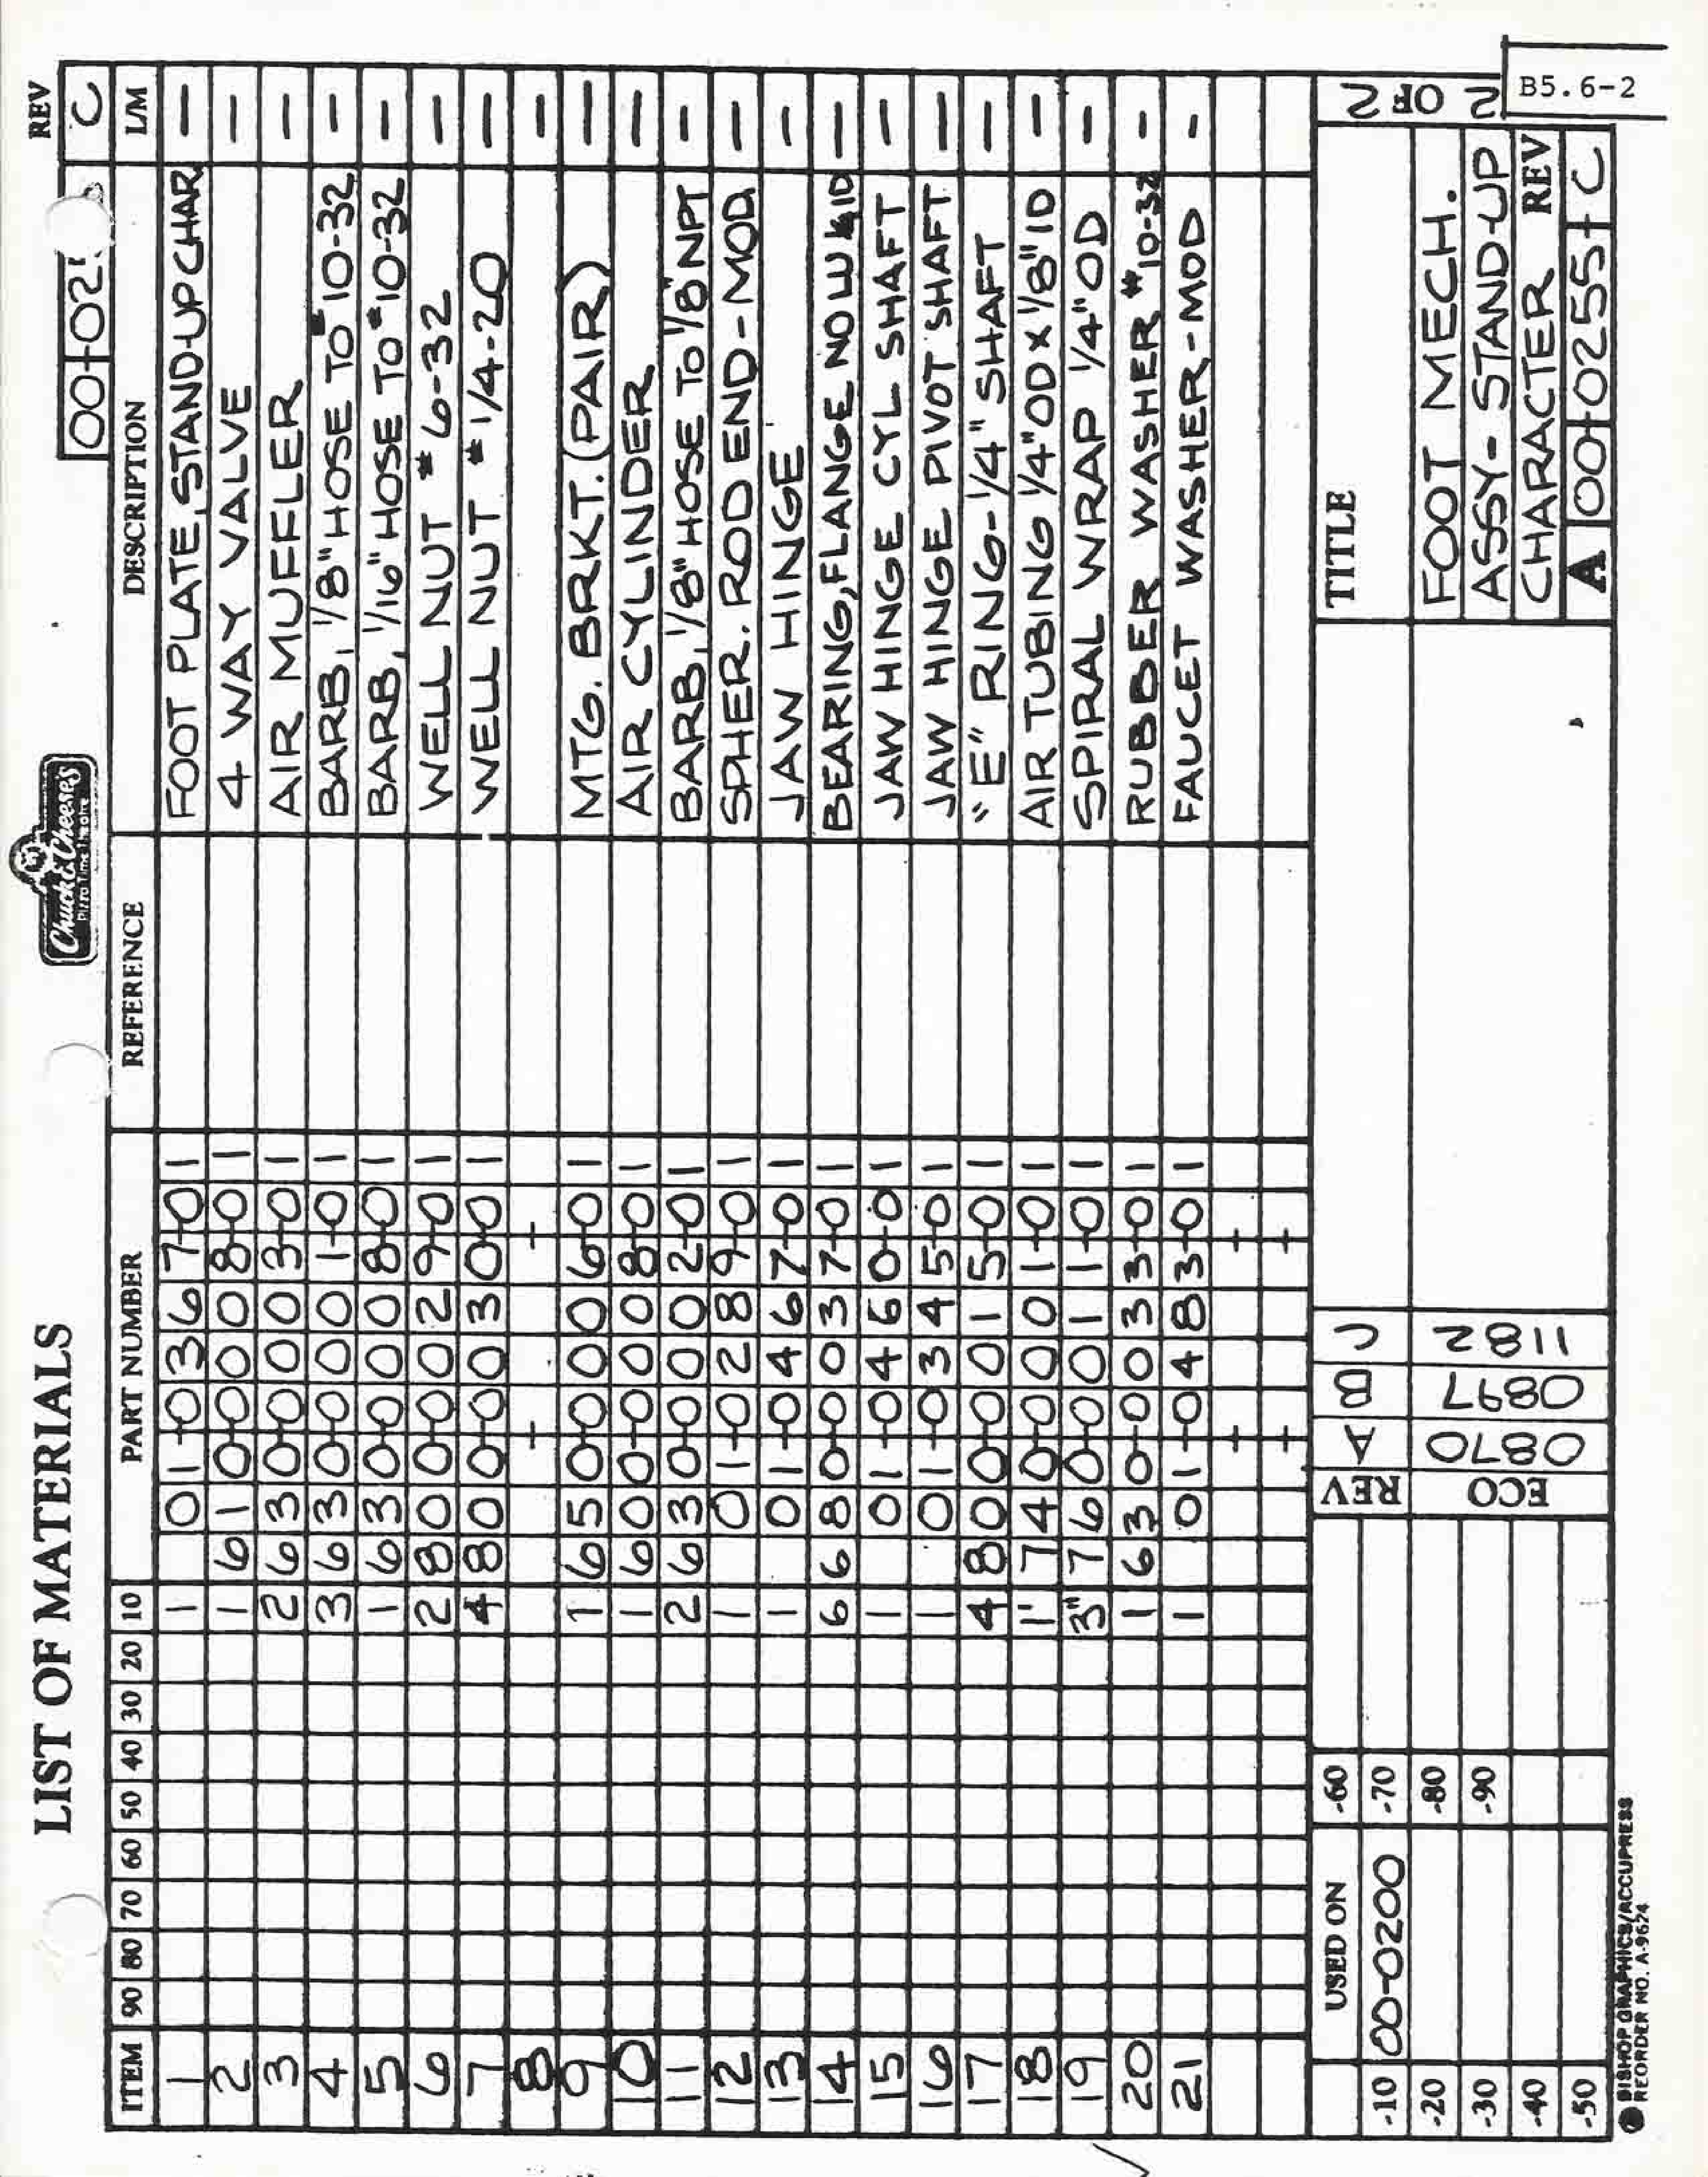 LIST OF MATERIALS
Chuck E. Cheese's
Pizza Time Theatre
REV
00-025 C
ITEM 90 80 70 60 50 40 30 20 10 PART NUMBER REFERENCE DESCRIPTION L/M
1 1 01-0367-01 FOOT PLATE, STAND-UP CHAR —
2 1 610-0008-01 4 WAY VALVE —
3 2 630-0003-01 AIR MUFFLER —
4 3 630-0001-01 BARB, 1/8" HOSE TO #10-32 —
5 1 630-0008-01 BARB, 1/16" HOSE TO #10-32 —
6 2 800-0029-01 WELL NUT #6-32 —
7 4 800-0030-01 WELL NUT #1/4-20 —
8 —
9 1 650-0006-01 MTG. BRKT. (PAIR) —
10 1 600-0008-01 AIR CYLINDER —
11 2 630-0002-01 BARB, 1/8" HOSE TO 1/8" NPT —
12 1 01-0289-01 SPHER. ROD END-MOD —
13 1 01-0467-01 JAW HINGE —
14 6 680-0037-01 BEARING, FLANGE NOLU 1/4 ID —
15 1 01-0460-01 JAW HINGE CYL SHAFT —
16 1 01-0345-01 JAW HINGE PIVOT SHAFT —
17 4 800-0015-01 "E" RING-1/4" SHAFT —
18 1' 740-0001-01 AIR TUBING 1/4" OD X 1/8" ID —
19 3" 760-0011-01 SPIRAL WRAP 1/4" OD —
20 1 630-0033-01 RUBBER WASHER #10-32 -
21 1 01-0483-01 FAUCET WASHER-MOD -
USED ON
-10 00-0200
-20
-30
-40
-50
-60
-70
-80
-90
REV A B C
ECO 0870 0897 1182
TITLE
2 OF 2
FOOT MECH.
ASSY- STAND-UP
CHARACTER REV
A 00-0255- C
B5.6-2
BISHOP GRAPHICS/ACCUPRESS
REORDER NO. A-9624